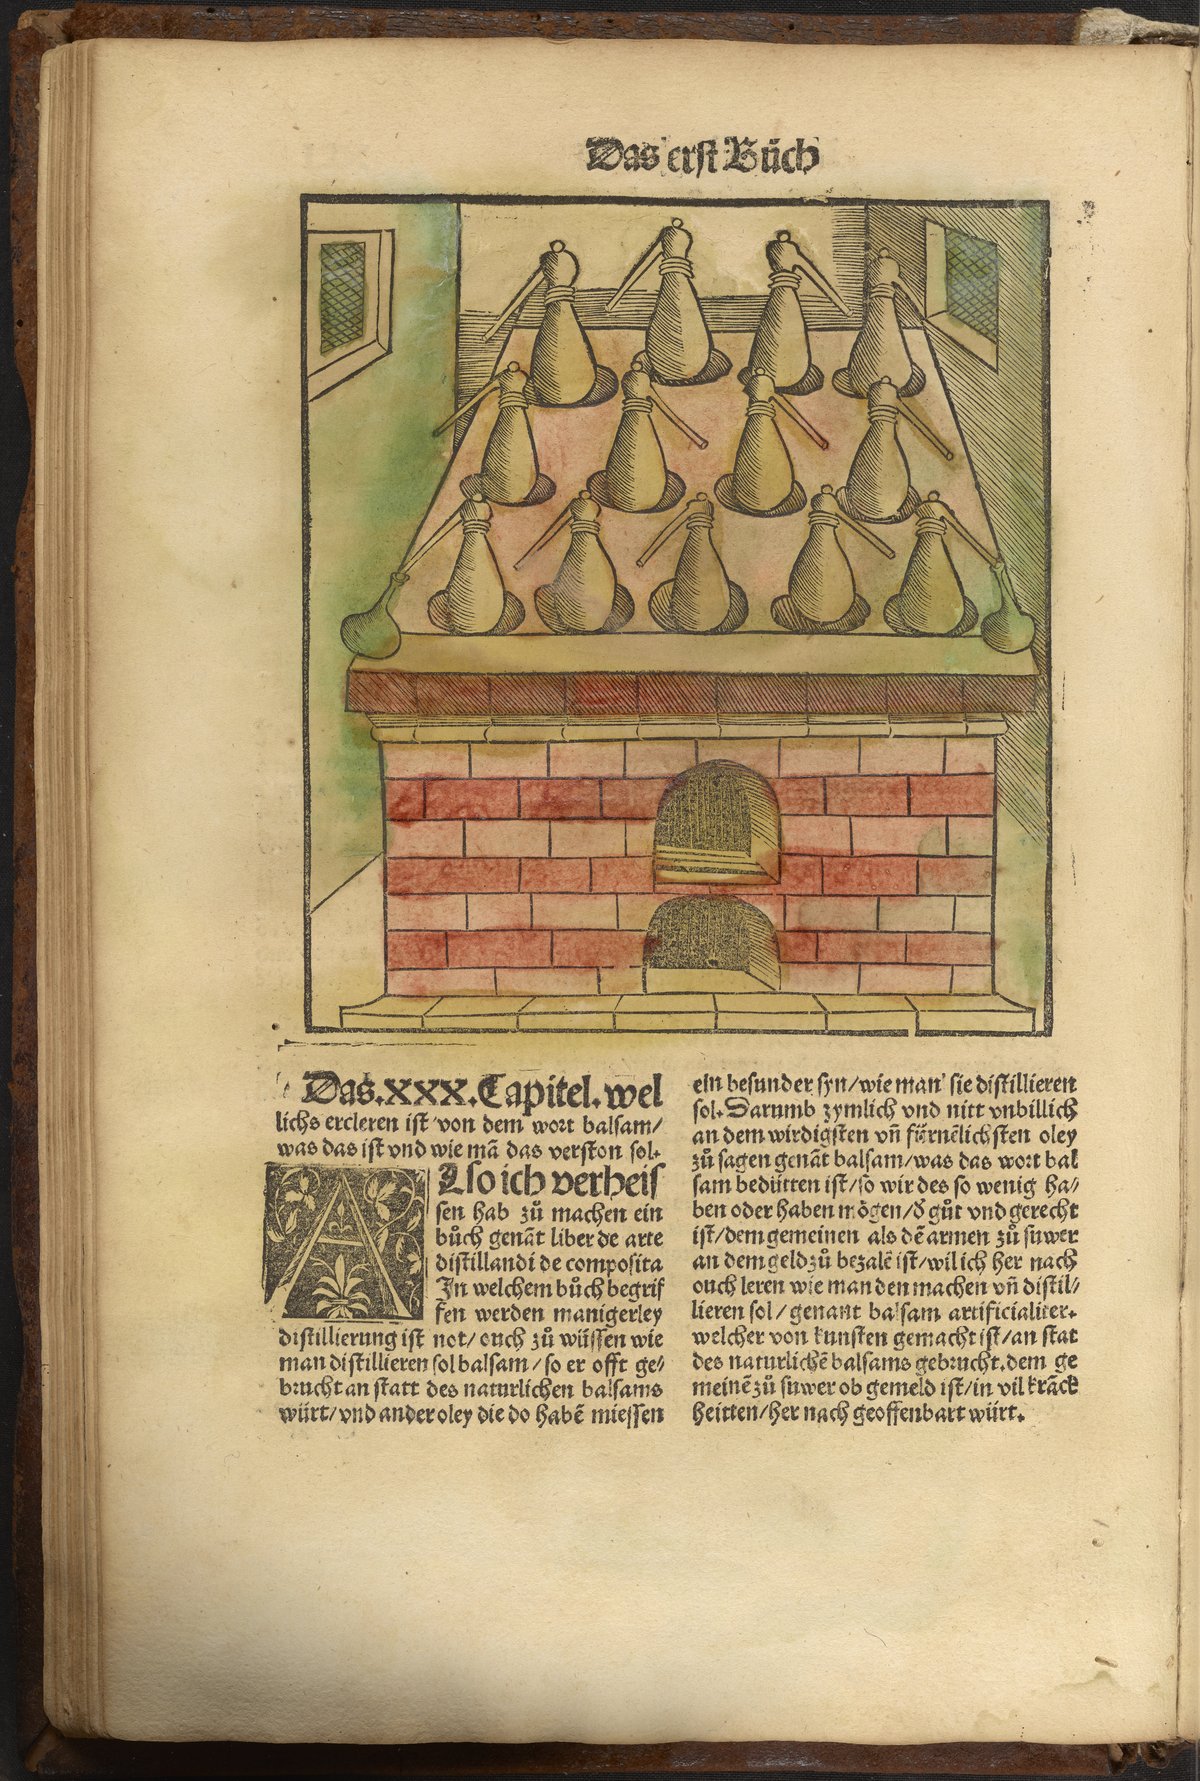 Das erst Bůch
Das.XXX.Capitel.wel
lichs ercleren ist von dem wort balsam/
was das ist vnd wie mā das verston sol.
Also ich verheis
sen hab zů machen ein
bůch genāt liber de arte
distillandi de composita
In welchem bůch begrif
fen werden manigerley
distillierung ist not/ ouch zů wüssen wie
man distillieren sol balsam/so er offt ge/
brucht an statt des naturlichen balsams
würt/vnd ander oley die do habē miessen
ein besunder syn/wie man sie distillieren
sol. Darumb zymlich vnd nitt vnbillich
an dem wirdigsten vñ fürnēlichsten oley
zů sagen genāt balsam/was das wort bal
sam bedütten ist/so wir des so wenig ha/
ben oder haben mögen/ď gůt vnd gerecht
ist/dem gemeinen als dē armen zů suwer
an dem geld zů bezalē ist/wil ich her nach
ouch leren wie man den machen vñ distil/
lieren sol/ genant balsam artificialiter.
welcher von kunsten gemacht ist/an stat
des naturlichē balsams gebrucht.dem ge
meinē zů suwer ob gemeld ist/in vil krāck
heitten/her nach geoffenbart würt.